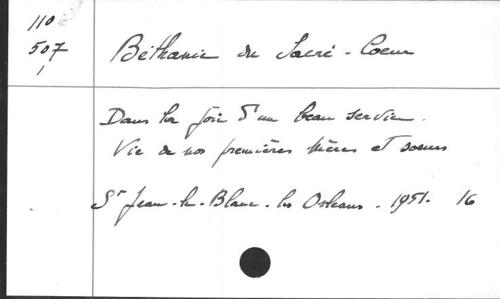 110
507
1
Béthanie du Sacré-Coeur
Dans la joie d'un beau service.
Vie de nos premières Mères et soeurs
St Jean-le-Blanc-les Orléans - 1951. 16